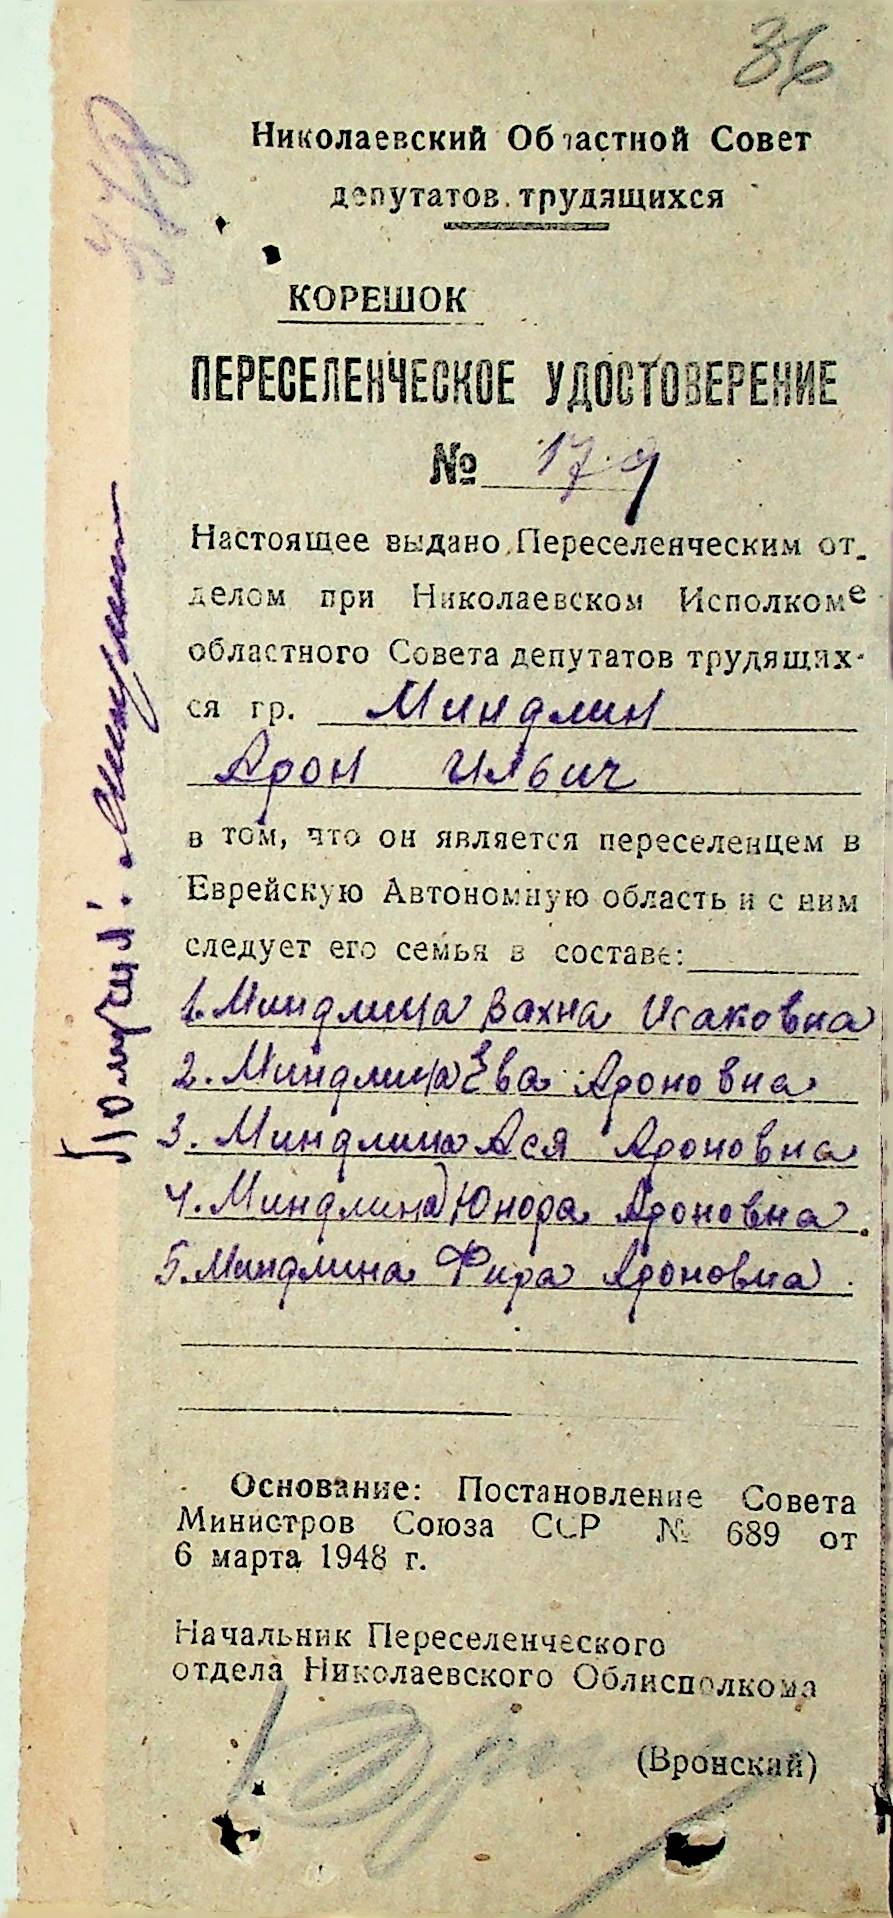 36
Николаевский Областной Совет
депутатов трудящихся
КОРЕШОК
ПЕРЕСЕЛЕНЧЕСКОЕ УДОСТОВЕРЕНИЕ
№ 179
Настоящее выдано Переселенческим от-
делом при Николаевском Исполкоме
областного Совета депутатов трудящих-
ся гр. Миндлин
Арон Ильич
в том, что он является переселенцем в
Еврейскую Автономную область и с ним
следует его семья в составе:
1. Миндлина Вахна Исаковна
2. Миндлина Ева Ароновна
3. Миндлина Ася Ароновна
4. Миндлина Юнора Ароновна.
5. Миндлина Фира Ароновна.
Основание: Постановление Совета
Министров Союза ССР № 689 от
6 марта 1948 г.
Начальник Переселенческого
отдела Николаевского Облисполкома
(Вронский)
Получил: